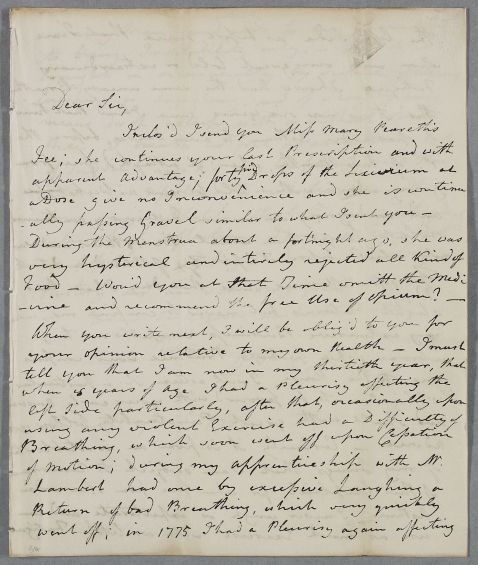 Dear Sir,
Inclos'd I send you Miss Mary Pearce's
Fee; she continues your last Prescription and with
apparent Advantage; forty five Drops of the at
a Dose give no Inconvenience and she is continu
-ally passing Gravel similar to what I sent you —
During the Menstrua about a fortnight ago, she was
very hysterical and intirely rejected all Kind of
Food — Would you at that Time omitt the Medi
-cine and recommend the free Use of Opium? —
When you write next, I will be oblig'd to you for
your opinion relative to my own Health — I must
tell you that I am now in my thirtieth year, that
when years of Age I had a Pleurisy affecting the
left Side particularly, after that, occasionally upon
using any violent Exercise had a Difficulty of
Breathing, which soon went off upon Cessation
of Motion; during my apprenticeship with Mr.
Lambert had once by excessive Laughing a
Return of bad Breathing, which very quickly
went off; in 1775 I had a Pleurisy again affecting